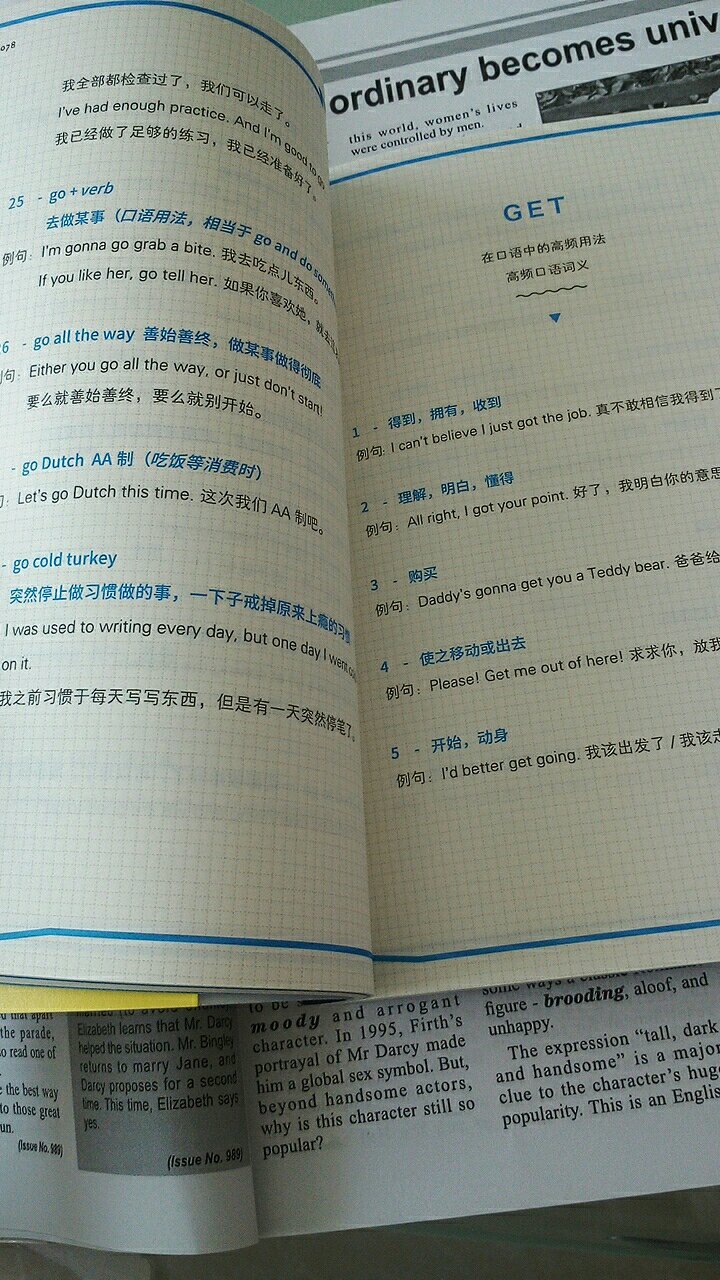 078
我全部都检查过了，我们可以走了。
I've had enough practice. And I'm good to go
我已经做了足够的练习，我已经准备好了。
25 - go + verb
去做某事（口语用法，相当于 go and do
例句：I'm gonna go grab a bite. 我去吃点儿东西。
If you like her, go tell her. 如果你喜欢她，
6 - go all the way 善始善终，做某事做得彻底
句：Either you go all the way, or just don't start!
要么就善始善终，要么就别开始。
- go Dutch AA 制（吃饭等消费时）
Let's go Dutch this time. 这次我们 AA 制吧。
- go cold turkey
突然停止做习惯做的事，一下子戒掉原来上瘾的习惯
I was used to writing every day, but one day I went
on it.
我之前习惯于每天写写东西，但是有一天突然停笔了。
GET
在口语中的高频用法
高频口语词义
1 - 得到，拥有，收到
例句：I can't believe I just got the job. 真不敢相信我得到了
2 - 理解，明白，懂得
例句：All right, I got your point. 好了，我明白你的意思
3 - 购买
例句：Daddy's gonna get you a Teddy bear. 爸爸给
4 - 使之移动或出去
例句：Please! Get me out of here! 求求你，放我
5 - 开始，动身
例句：I'd better get going. 我该出发了 / 我该走
ordinary becomes univ
this world, women's lives
were controlled by men.
that apart
the parade,
so read one of
the best way
to those great
un.
(Issue No. 989)
Elizabeth learns that Mr. Darcy
helped the situation. Mr. Bingley
returns to marry Jane, and
Darcy proposes for a second
time. This time, Elizabeth says
yes.
(Issue No. 989)
to be
moody and arrogant
character. In 1995, Firth's
portrayal of Mr Darcy made
him a global sex symbol. But,
beyond handsome actors,
why is this character still so
popular?
some ways a classic
figure - brooding, aloof, and
unhappy.
The expression “tall, dark
and handsome” is a major
clue to the character's huge
popularity. This is an English